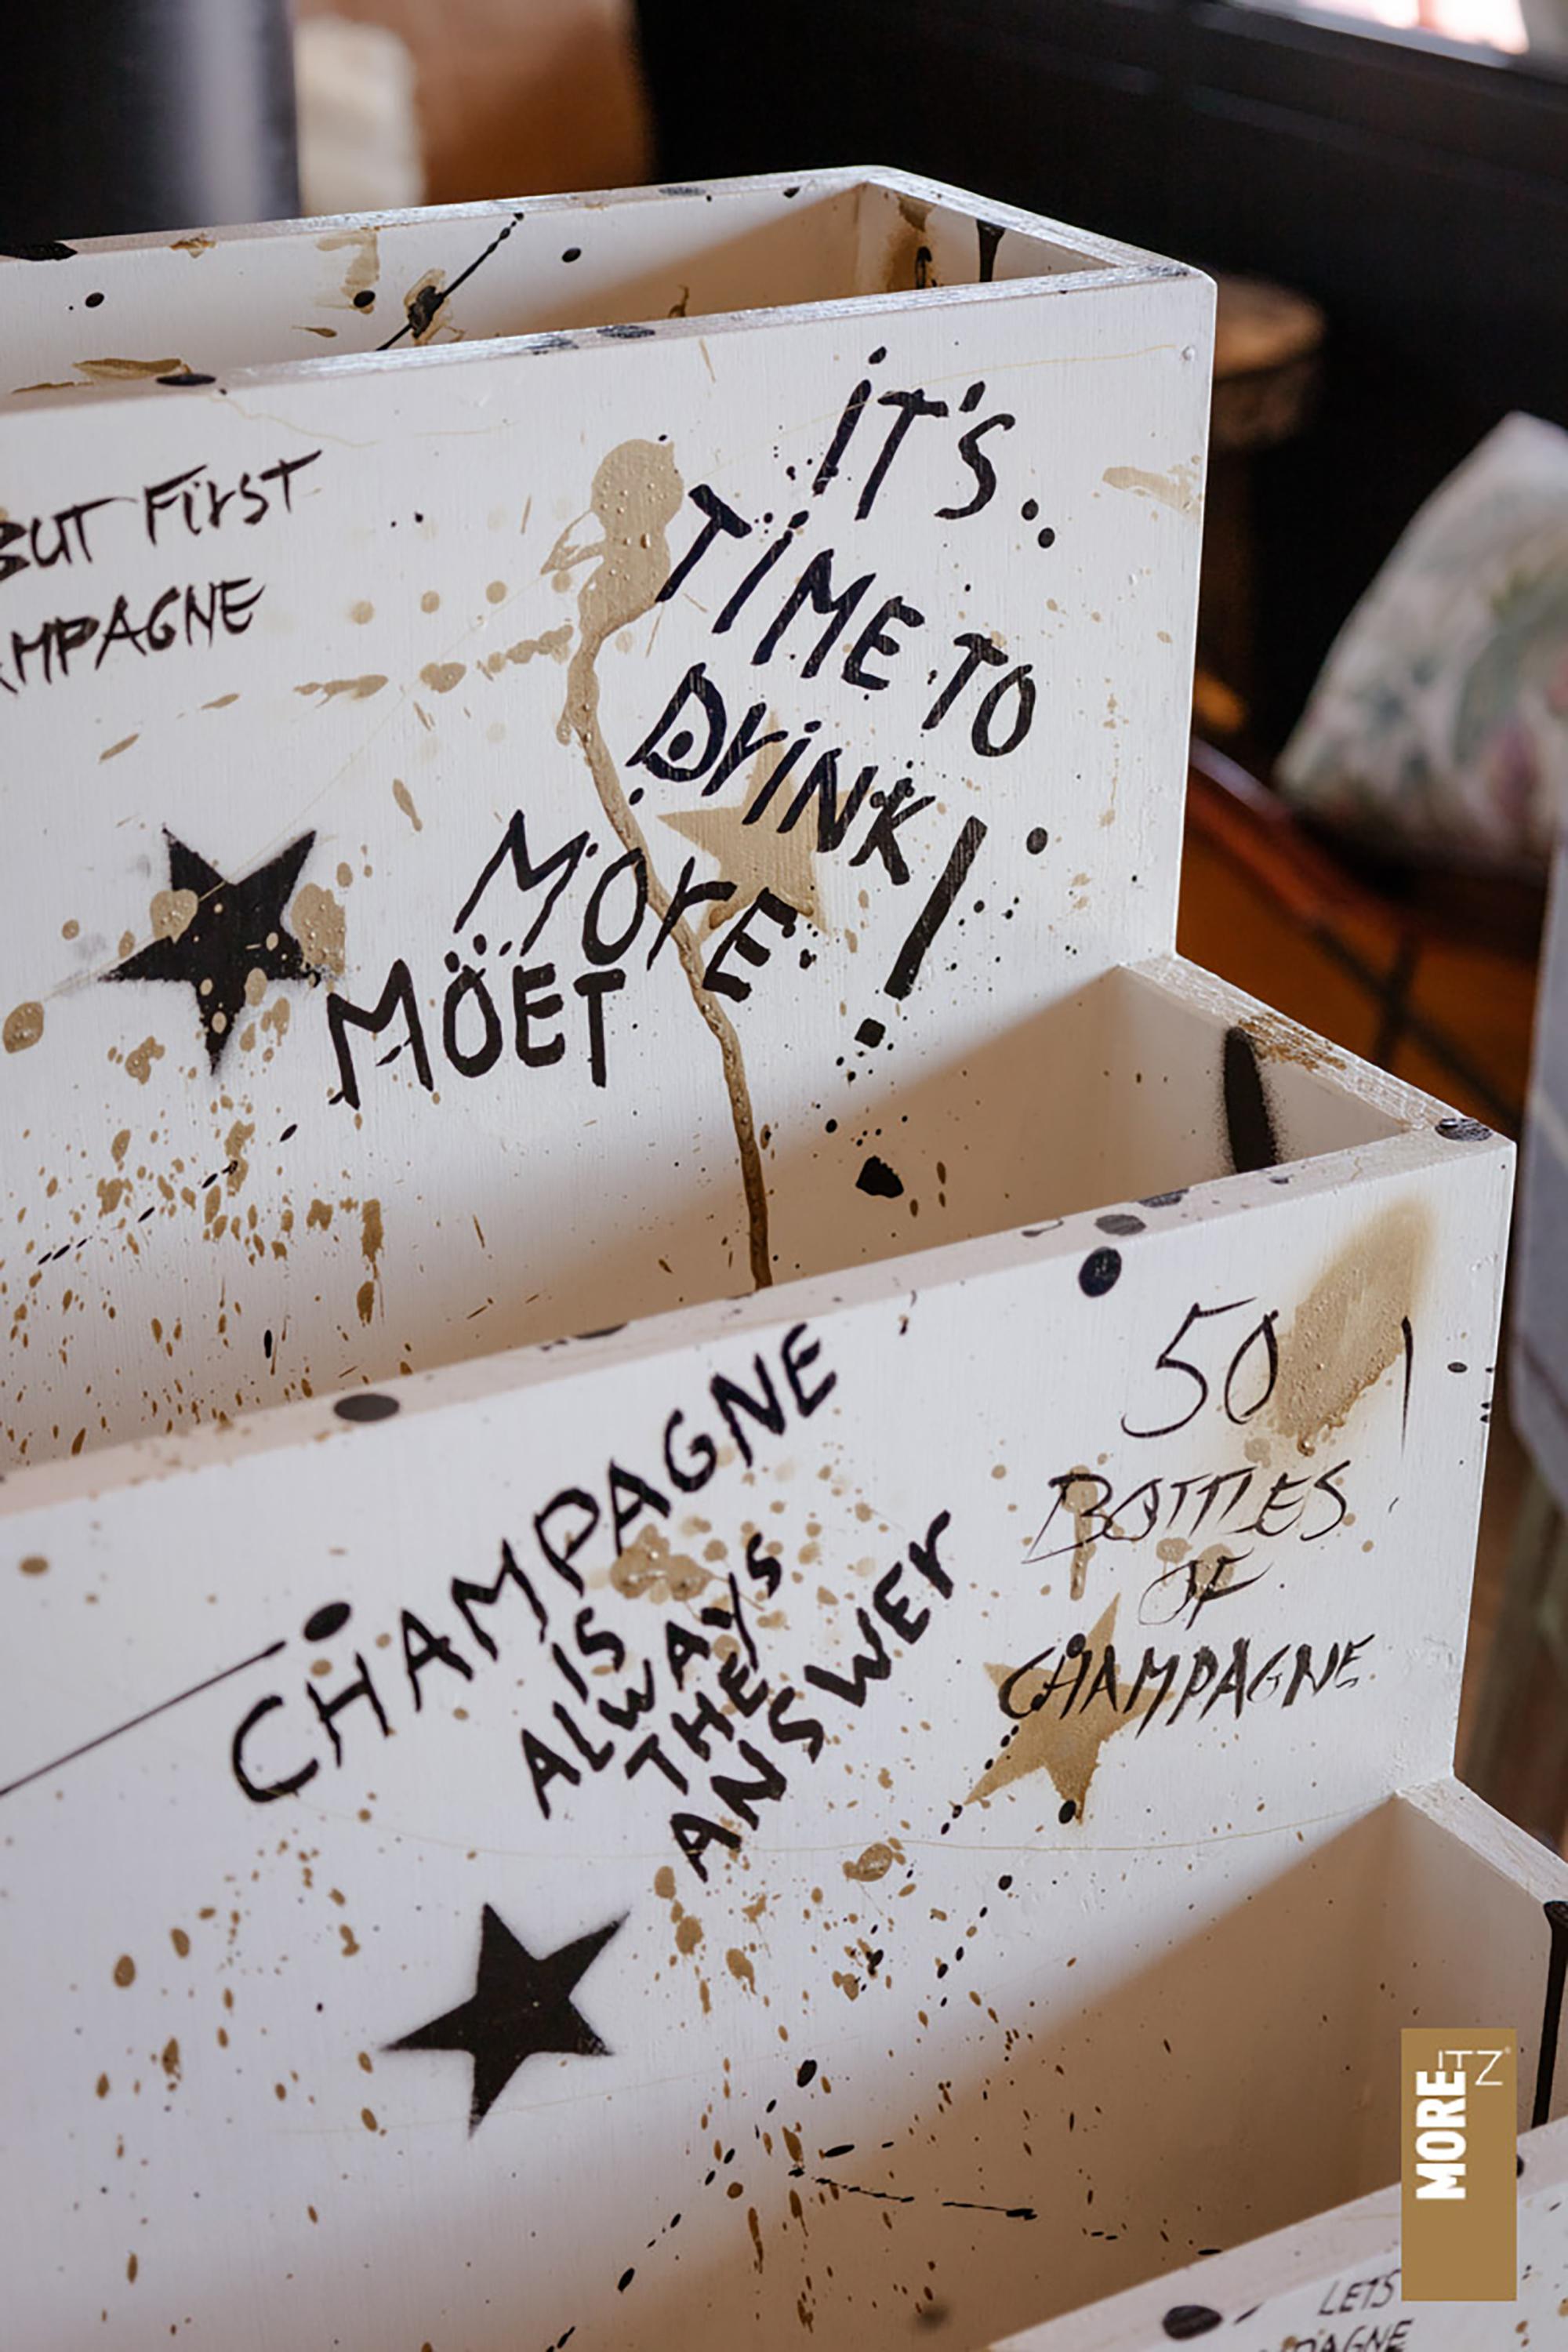 BUT FIrST
AMPAGNE
IT'S..
TIME TO
DrINK!
MOrE
MÖET
CHAMPAGNE
IS
ALWAYS
THE
ANSWEr
50
BOTTLES
OF
CHAMPAGNE
LETS
PAGNE
MOREITZ